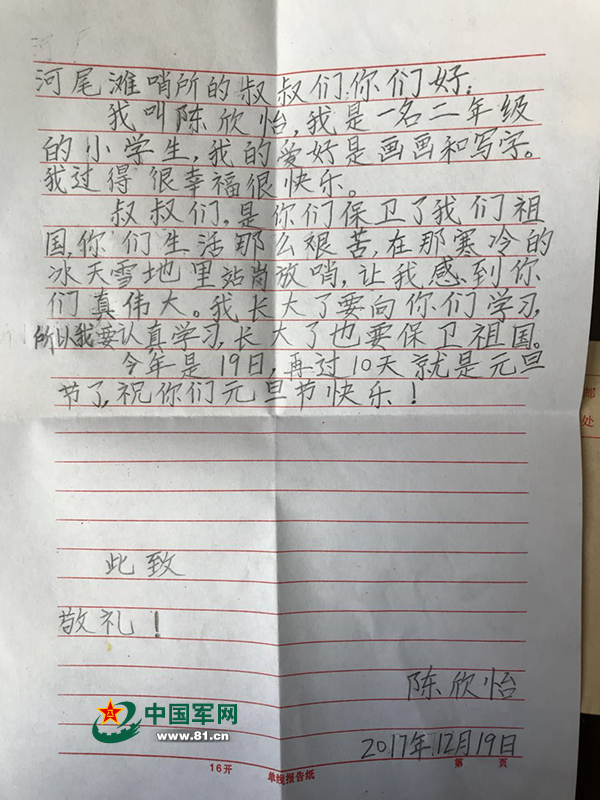 河尾滩哨所的叔叔们你们好:
我叫陈欣怡,我是一名二年级
的小学生,我的爱好是画画和写字。
我过得很幸福很快乐。
叔叔们,是你们保卫了我们祖
国,你们生活那么艰苦,在那寒冷的
冰天雪地里站岗放哨,让我感到你
们真伟大。我长大了要向你们学习,
所以我要认真学习,长大了也要保卫祖国。
今年是19日,再过10天就是元旦
节了,祝你们元旦节快乐!
此致
敬礼!
陈欣怡
2017年12月19日
中国军网
www.81.cn
16开 单线报告纸 第 页
邮
处